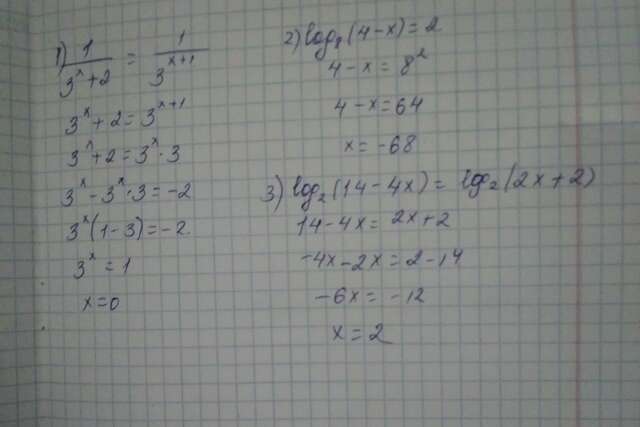 1) 1/(3^x+2) = 1/3^(x+1)
3^x+2=3^(x+1)
3^x+2=3^x·3
3^x-3^x·3=-2
3^x(1-3)=-2.
3^x=1
x=0
2) log₈(4-x)=2
4-x=8²
4-x=64
x=-68
3) log₂(14-4x)= log₂(2x+2)
14-4x=2x+2
-4x-2x=2-14
-6x=-12
x=2